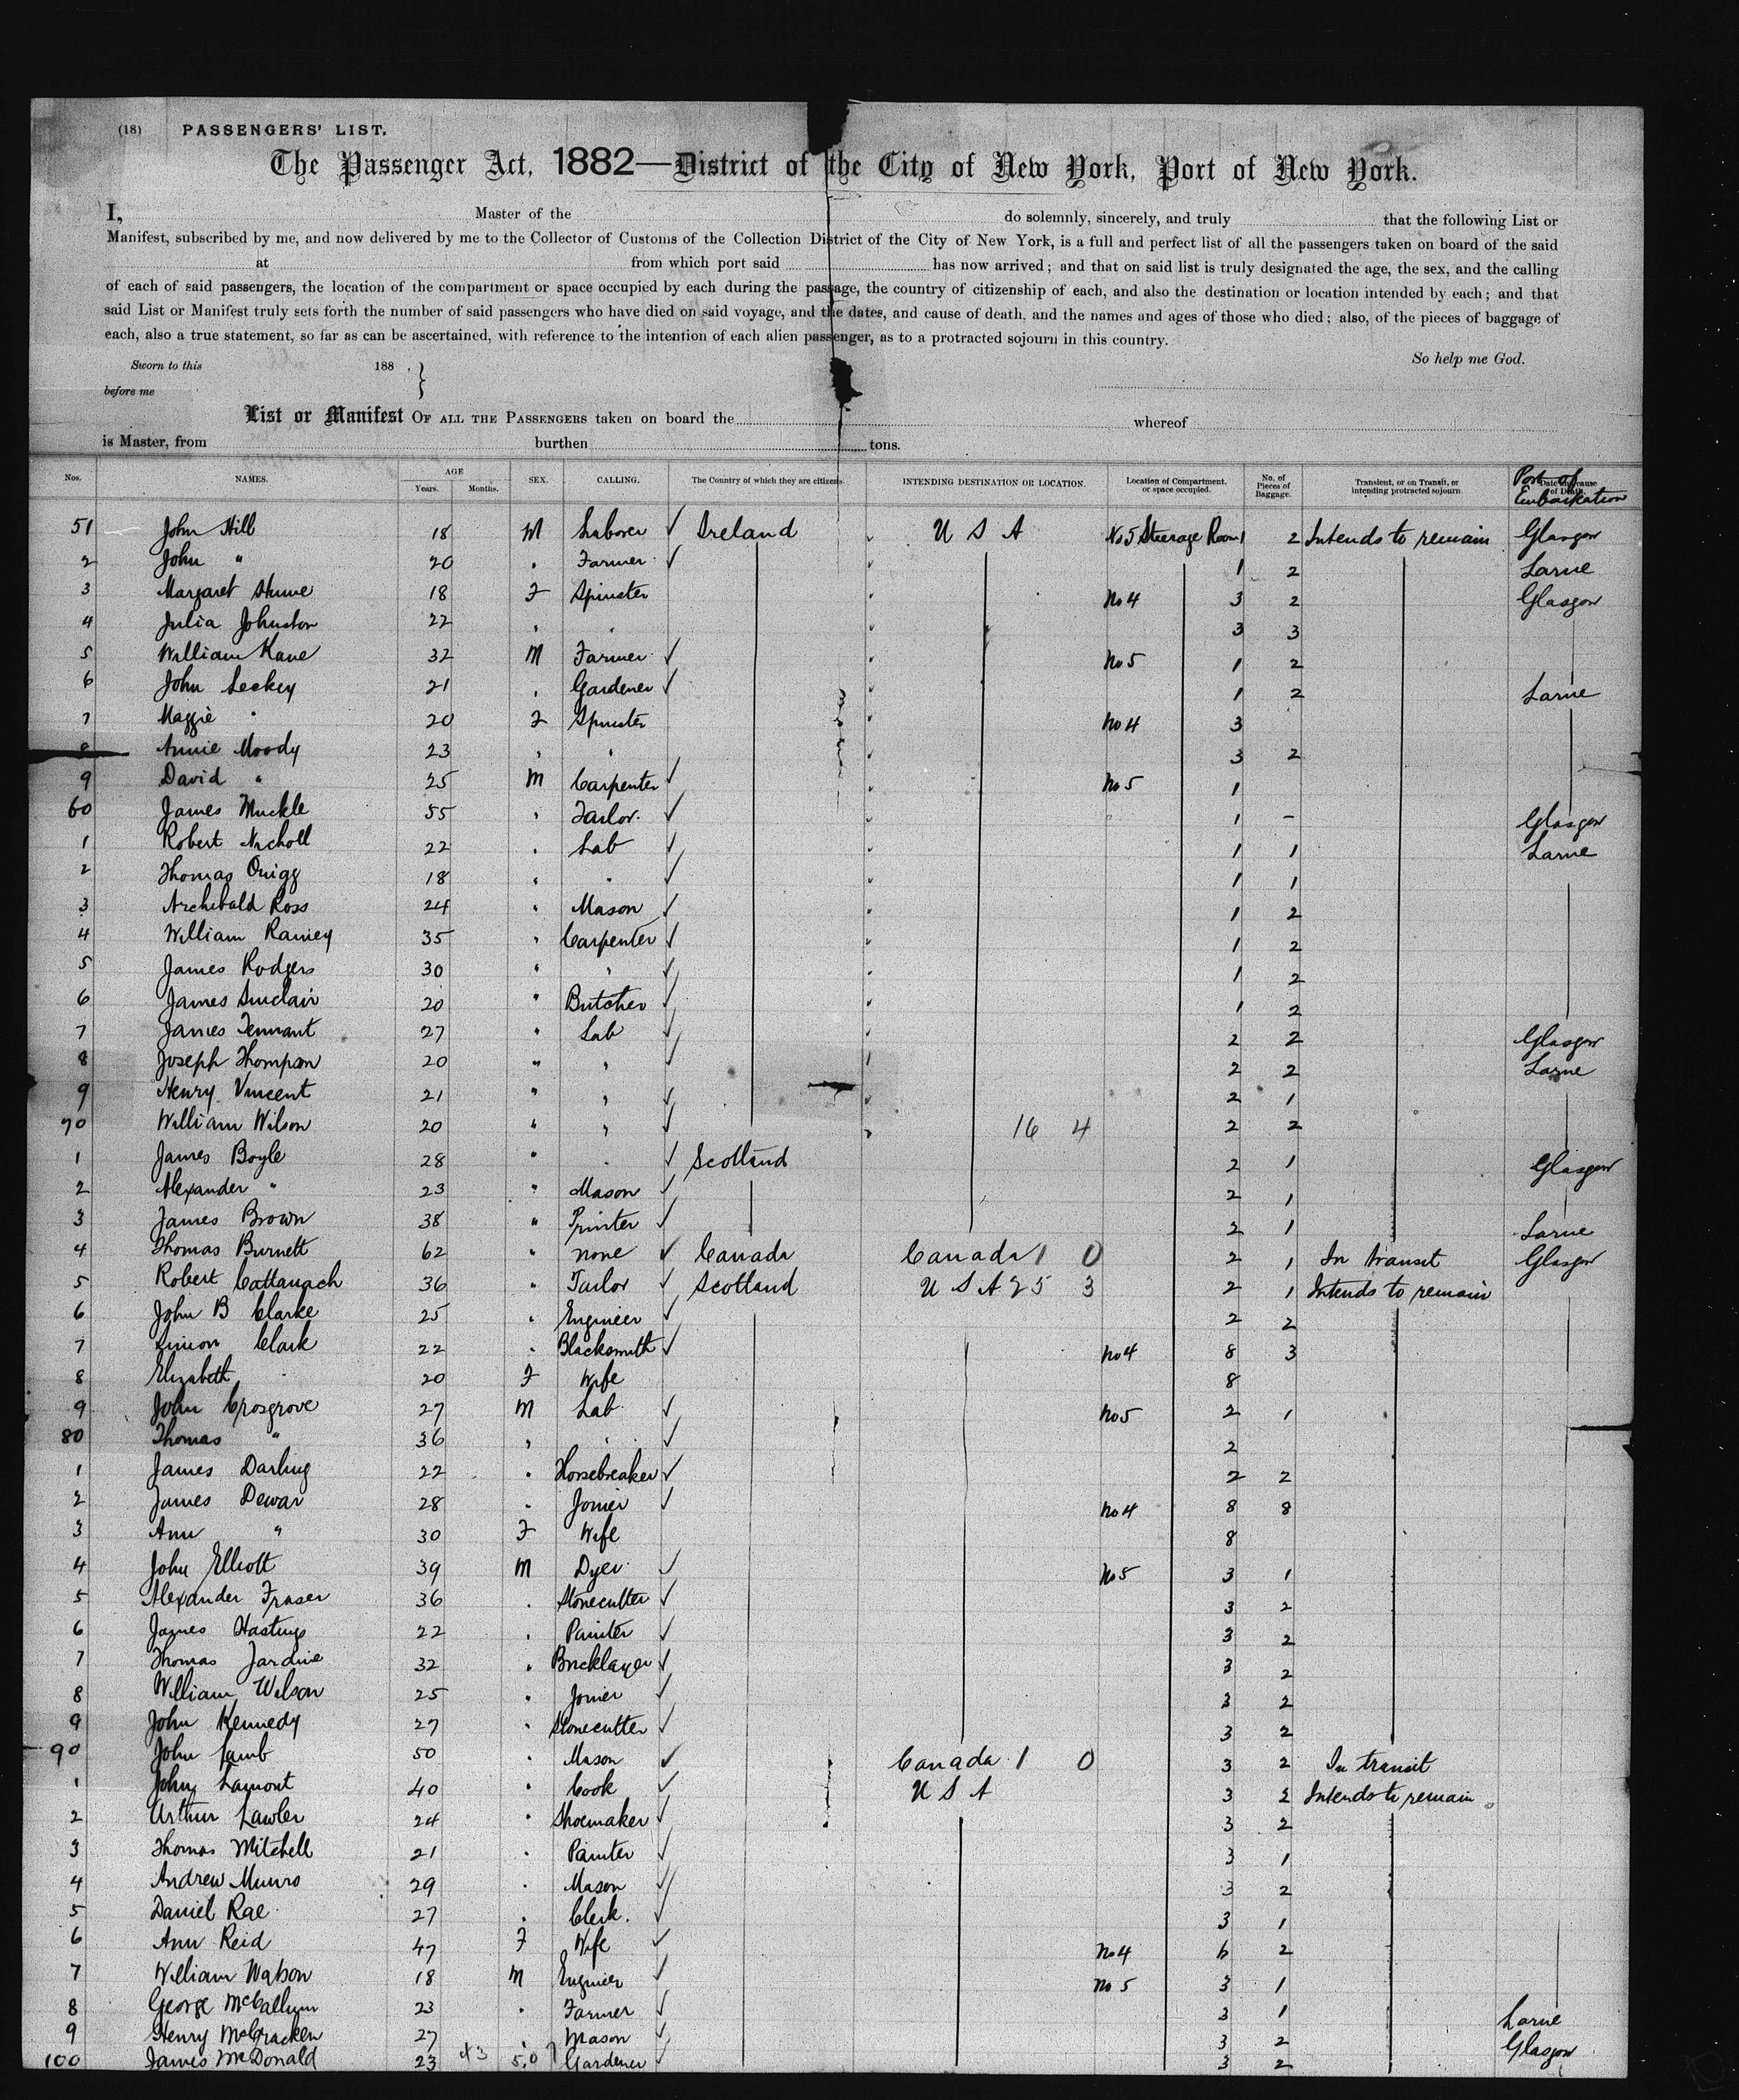 (18) PASSENGERS' LIST.
The Passenger Act, 1882—District of the City of New York, Port of New York.
I, Master of the do solemnly, sincerely, and truly that the following List or
Manifest, subscribed by me, and now delivered by me to the Collector of Customs of the Collection District of the City of New York, is a full and perfect list of all the passengers taken on board of the said
at from which port said has now arrived; and that on said list is truly designated the age, the sex, and the calling
of each of said passengers, the location of the compartment or space occupied by each during the passage, the country of citizenship of each, and also the destination or location intended by each; and that
said List or Manifest truly sets forth the number of said passengers who have died on said voyage, and the dates, and cause of death, and the names and ages of those who died; also, of the pieces of baggage of
each, also a true statement, so far as can be ascertained, with reference to the intention of each alien passenger, as to a protracted sojourn in this country.
So help me God.
Sworn to this 188 .
before me
List or Manifest OF ALL THE PASSENGERS taken on board the whereof
is Master, from burthen tons.
Nos. NAMES. AGE Years. Months. SEX. CALLING. The Country of which they are citizens. INTENDING DESTINATION OR LOCATION. Location of Compartment, or space occupied. No. of Pieces of Baggage. Transient, or on Transit, or intending protracted sojourn. Port of Embarkation
51 John Hill 18 M Laborer ✓ Ireland U S A No 5 Steerage Room 1 2 Intends to remain Glasgow
2 John " 20 " Farmer ✓ 1 2 Larne
3 Margaret Hume 18 F Spinster No 4 3 2 Glasgow
4 Julia Johnston 22 " " 3 3
5 William Kane 32 M Farmer ✓ No 5 1 2
6 John Leckey 21 " Gardener ✓ 1 2 Larne
7 Maggie " 20 F Spinster No 4 3
8 Annie Moody 23 " " 3 2
9 David " 25 M Carpenter ✓ No 5 1
60 James Muckle 55 " Tailor ✓ 1 – Glasgow
1 Robert Nicholl 22 " Lab ✓ 1 1 Larne
2 Thomas Quigg 18 " " ✓ 1 1
3 Archibald Ross 24 " Mason ✓ 1 2
4 William Ramey 35 " Carpenter ✓ 1 2
5 James Rodgers 30 " " ✓ 1 2
6 James Sinclair 20 " Butcher ✓ 1 2
7 James Tennant 27 " Lab ✓ 2 2 Glasgow
8 Joseph Thompson 20 " " ✓ 2 2 Larne
9 Henry Vincent 21 " " ✓ 2 1
70 William Wilson 20 " " ✓ 16 4 2 2
1 James Boyle 28 " " ✓ Scotland 2 1 Glasgow
2 Alexander " 23 " Mason ✓ 2 1
3 James Brown 38 " Printer ✓ 2 1 Larne
4 Thomas Burnett 62 " None ✓ Canada Canada 1 0 2 1 In transit Glasgow
5 Robert Cattanach 36 " Tailor ✓ Scotland U S A 25 3 2 1 Intends to remain
6 John B Clarke 25 " Engineer ✓ 2 2
7 Simon Clark 22 " Blacksmith ✓ No 4 8 3
8 Elizabeth " 20 F Wife 8
9 John Crosgrove 27 M Lab ✓ No 5 2 1
80 Thomas " 36 " " ✓ 2
1 James Darling 22 " Horsebreaker ✓ 2 2
2 James Dewar 28 " Joiner ✓ No 4 8 8
3 Ann " 30 F Wife 8
4 John Elliott 39 M Dyer ✓ No 5 3 1
5 Alexander Fraser 36 " Stonecutter ✓ 3 2
6 James Hastings 22 " Painter ✓ 3 2
7 Thomas Jardine 32 " Bricklayer ✓ 3 2
8 William Wilson 25 " Joiner ✓ 3 2
9 John Kennedy 27 " Stonecutter ✓ 3 2
90 John Lamb 50 " Mason ✓ Canada 1 0 3 2 In transit
1 John Lamont 40 " Cook ✓ U S A 3 2 Intends to remain
2 Arthur Lawler 24 " Shoemaker ✓ 3 2
3 Thomas Mitchell 21 " Painter ✓ 3 1
4 Andrew Munro 29 " Mason ✓ 3 2
5 Daniel Rae 27 " Clerk ✓ 3 1
6 Ann Reid 47 F Wife ✓ No 4 6 2
7 William Watson 18 M Engineer ✓ No 5 3 1
8 George McCallum 23 " Farmer ✓ 3 1 Larne
9 Henry McCracken 27 " Mason ✓ 3 2 Glasgow
100 James McDonald 23 " Gardener ✓ 3 2